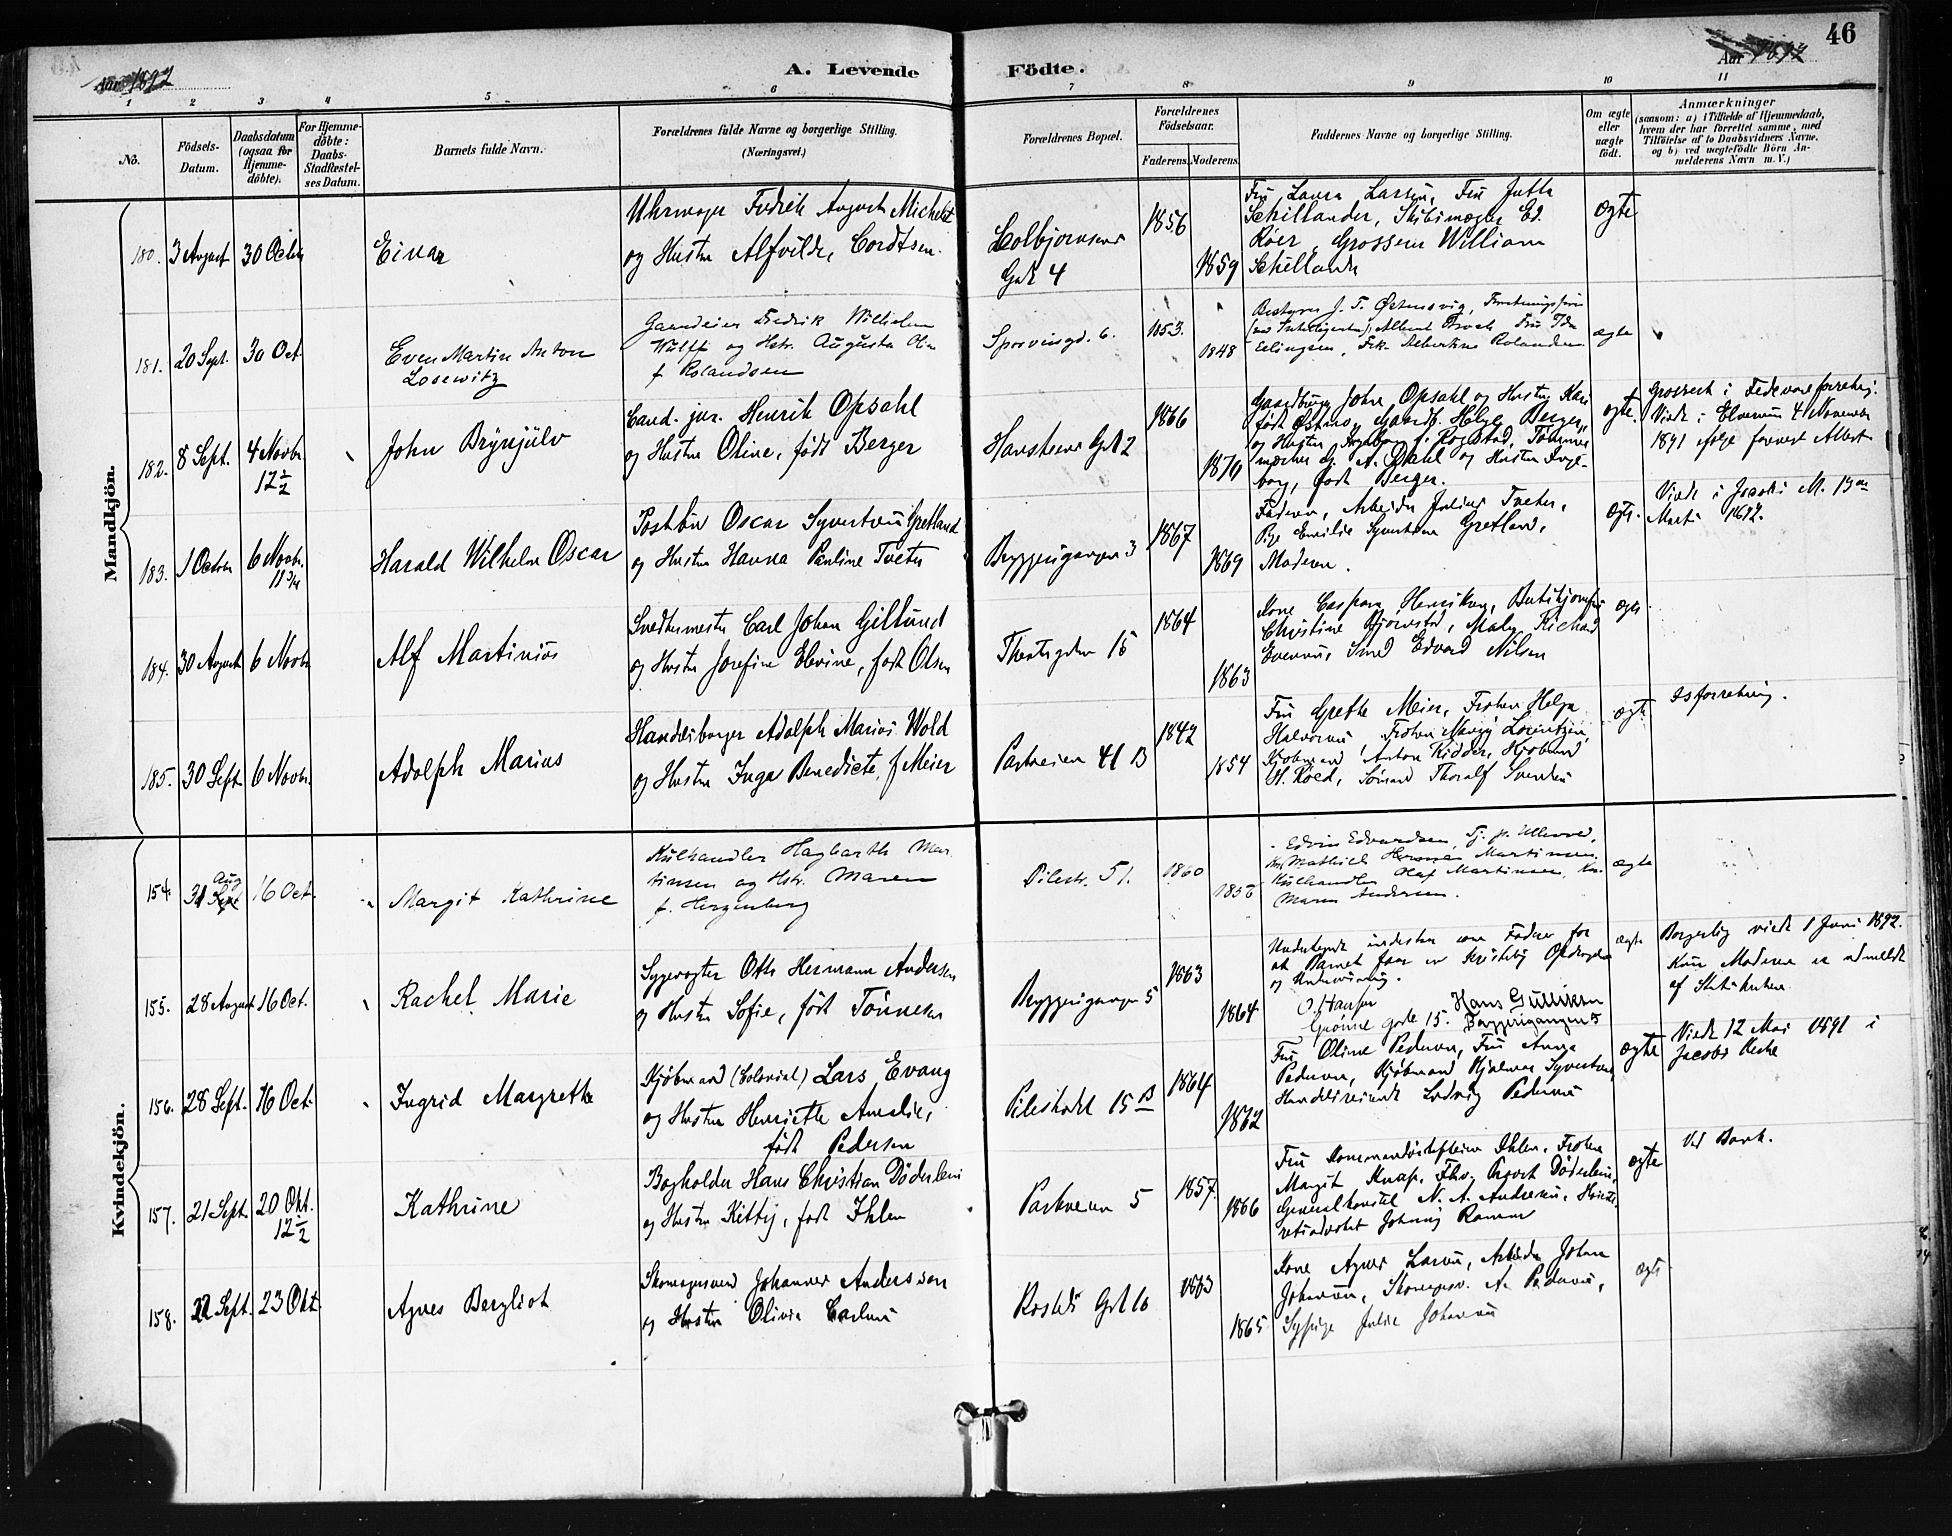 46
Aar 1892
A. Levende Födte.
Aar 1892
1 2 3 4 5 6 7 8 9 10 11
No.
Födsels-Datum.
Daabsdatum (ogsaa for Hjemmedöbte).
For Hjemmedöbte: Daabs-Stadfæstelses Datum.
Barnets fulde Navn.
Forældrenes fulde Navne og borgerlige Stilling.
(Næringsvei.)
Forældrenes Bopæl.
Forældrenes Födselsaar.
Faderens. Moderens.
Faddernes Navne og borgerlige Stilling.
Om ægte eller uægte födt.
Anmærkninger
(saasom: a) i Tilfælde af Hjemmedaab,
hvem der har forrettet samme, med
Tilföielse af to Daabsvidners Navne.
og b) ved uægtefödte Börn Anmelderens Navn m. V.)
Mandkjön.
180. 3 August 30 Octbr
Einar
Uhrmager Fredrik August Michelet
og Hustru Alfvilde, Cordtsen.
Colbjörnsens
Gade 4
1856
1859
Fru Laura Larsen, Fru Jutta
Schillander, Skibsmægler Ed.
Röer, Grosserer William
Schillander
ægte
181. 20 Sept. 30 Oct
Even Martin Anton
Losewitz
Gaardeier Fredrik Wilhelm
Wulff og Hstr. Augusta
f Rolandsen
Spörveisgd. 6.
1853.
1848
Bestyrer J. F.
Albert Fru Ida
Erlingsen, Frk. Albertine Rolandsen
ægte
182. 8 Sept. 4 Novbr
12½
John Brynjülv
Cand. jur. Henrik Opsahl
og Hustru Oline, født Berger
Hansteens Gd 2
1866
1870
Gaardbruger John Opsahl og Hustru Kari
født Gaardb. Helge Berger,
og Hustru Ingeborg f. Rogstad,
A. Opsahl og Hustru Ingeborg,
født Berger.
ægte.
Grosserer i Fedevareforretng.
Viede i Elverum 4 November
1891 ifølge forevist Attest
183. 1 Octobr 6 Novbr.
11 3/4
Harald Wilhelm Oscar
Postbud Oscar Syvertsen Gretland
og Hustru Hanna Pauline Tveter
Bryggerigangen 3
1867
1869
Faderen, Arbeider Julius Tveter,
Pige Emilie Syvertsen Gretland,
Moderen.
ægte.
Viede i Jacobs M. 13de
Marts 1892.
184. 30 August 6 Novbr
Alf Martinius
Snedkermester Carl Johan Gillund
og Hustru Josefine Elevine, født Olsen
Theresegaden 15
1864
1863
Kone Caspara Henriksen,
Christine Bjørnstad, Maler Richard
Evensen, Smed Edvard Nilsen
ægte
185. 30 Sept 6 Novbr.
Adolph Marius
Handelsborger Adolph Marius Wold
og Hustru Inga Benedicte, f Meier
Parkveien 41 B
1842
1854
Fru Grethe Meier, Frøken Helga
Halvorsen Frøken Lorentzen,
Kjøbmand Anton Ridder, Kjøbmand
H. Röed, Sömand Thoralf Svendsen
ægte
Isforretning.
Kvindekjön.
154. 31 Aug 16 Oct.
Sept
Margit Kathrine
Kulhandler Hagbarth Martinsen
og Hstr. Maren
f. Herzenberg
Pilestr. 51.
1860
Edvin Edvardsen, Tj. p. Ullevold,
Mathild Martinsen,
Kulhandler Olaf Martinsen,
Maren Andersen.
ægte
155. 28 August 16 Oct.
Rachel Marie
Sygevogter Otto Hermann Andersen
og Hustru Sofie, født Tönnesen
Bryggerigangen 5
1863
1864
Undertegnede indestaar som Faddere for
at Barnet faar en kristelig Opdragelse
og Undervisning.
O. Hansen Hans Gulliksen
Grønne gade 15. Bryggerigangen 5
ægte
Borgerlig viede 1 Juni 1892.
Kun Moderen er udmeldt
af Statskirken.
156. 28 Sept. 16 Oct.
Ingrid Margrethe
Kjöbmand (Colonial) Lars Evang
og Hustru Henriette Amalie,
født Pedersen
Pilestrædet 15 B
1864
1862
Fru Oline Pedersen, Fru Anna
Pedersen, Kjøbmand Hjalmar Syvertsen,
Handelsreisende Ludvig Pedersen
ægte
Viede 12 Mai 1891 i
Jacobs Kirke
157. 21 Sept. 20 Okt.
12½
Kathrine
Bogholder Hans Christian Döderlein
og Hustru Kitty, født Ihlen
Parkveien 5
1857
1866
Fru Ihlen, Frøken
Margit Knap, August Döderlein,
Generalkonsul N. A. Andresen,
Johannes
ægte
Ved Bank.
158. 22 Sept. 23 Okt.
Agnes Bergliot
Skomagersvend Johannes Andersson
og Hustru Olivia Carlsen
Rosteds Gd 16
1863
1865
Kone Agnes Larsen, Arbeider Johan
Johansen, Skomagersv. A. Pedersen,
Sypige Julie Johansen
ægte